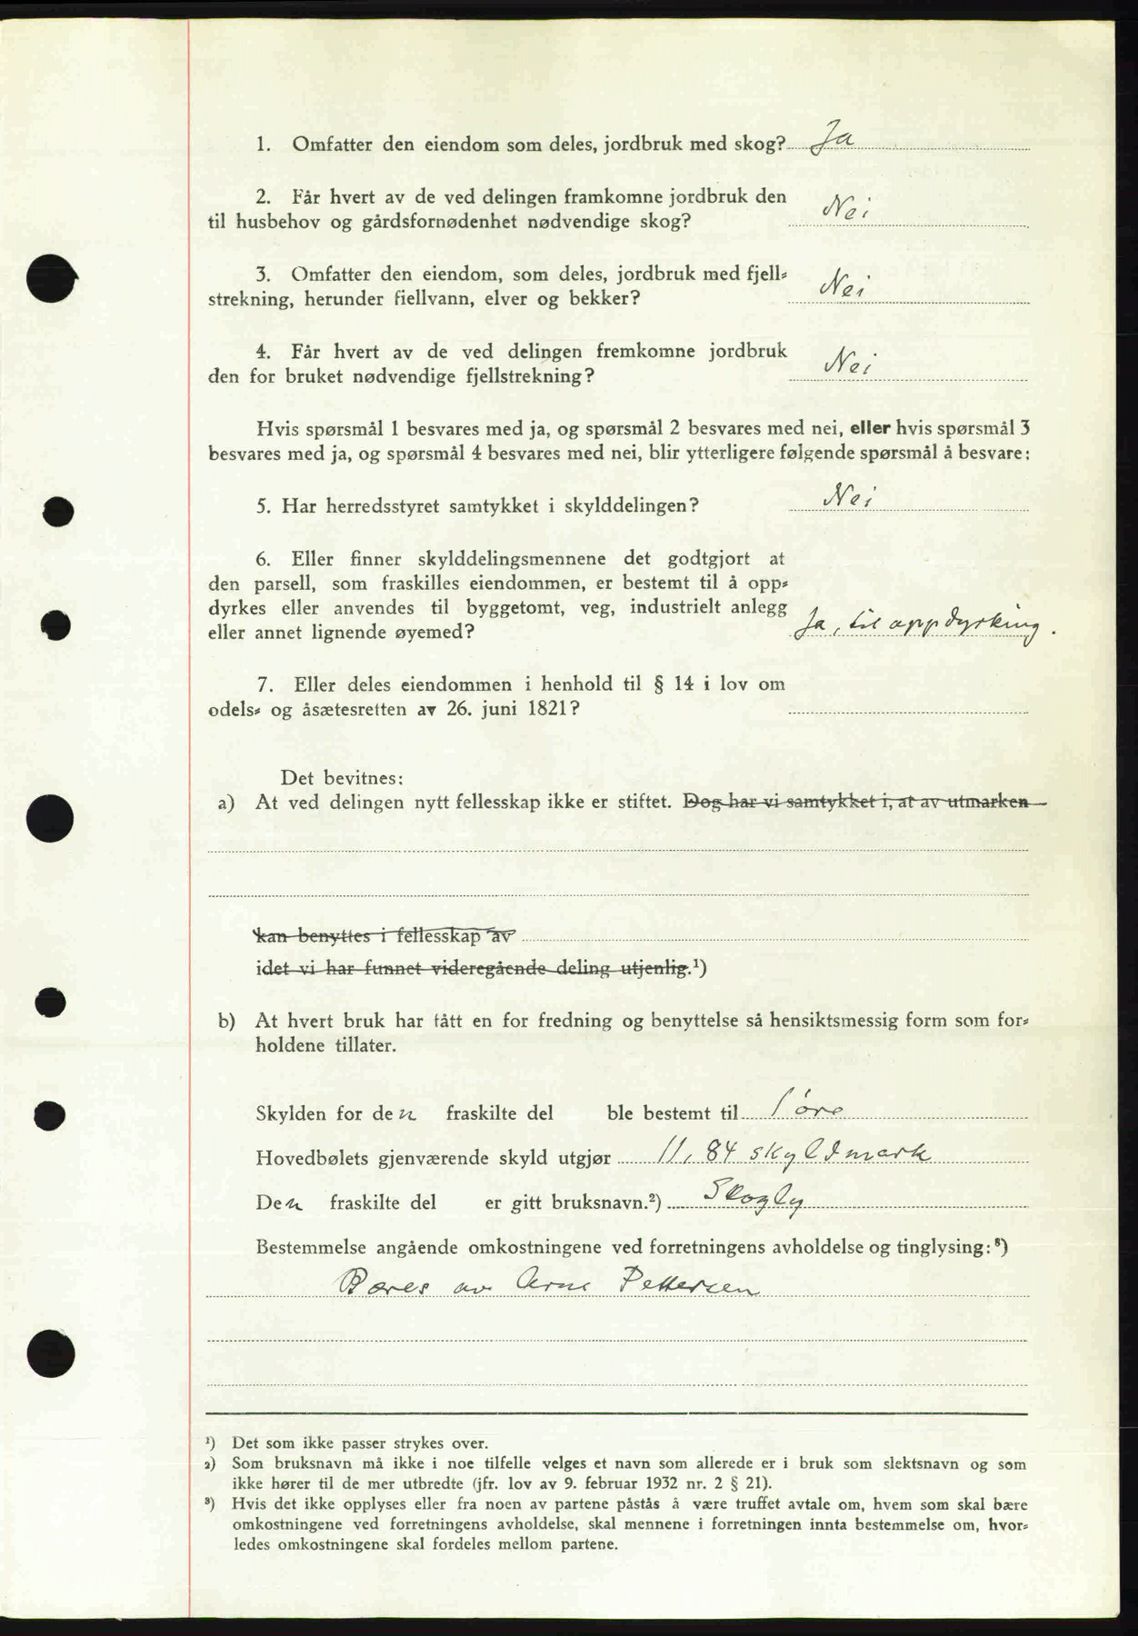 1. Omfatter den eiendom som deles, jordbruk med skog? Ja
2. Får hvert av de ved delingen framkomne jordbruk den
til husbehov og gårdsfornødenhet nødvendige skog? Nei
3. Omfatter den eiendom, som deles, jordbruk med fjell=
strekning, herunder fiellvann, elver og bekker? Nei
4. Får hvert av de ved delingen fremkomne jordbruk
den for bruket nødvendige fjellstrekning? Nei
Hvis spørsmål 1 besvares med ja, og spørsmål 2 besvares med nei, eller hvis spørsmål 3
besvares med ja, og spørsmål 4 besvares med nei, blir ytterligere følgende spørsmål å besvare:
5. Har herredsstyret samtykket i skylddelingen? Nei
6. Eller finner skylddelingsmennene det godtgjort at
den parsell, som fraskilles eiendommen, er bestemt til å opp=
dyrkes eller anvendes til byggetomt, veg, industrielt anlegg
eller annet lignende øyemed? Ja, til oppdyrking.
7. Eller deles eiendommen i henhold til § 14 i lov om
odels= og åsætesretten av 26. juni 1821?
Det bevitnes:
a) At ved delingen nytt fellesskap ikke er stiftet. Dog har vi samtykket i, at av utmarken
kan benyttes i fellesskap av
idet vi har funnet videregående deling utjenlig.¹)
b) At hvert bruk har fått en for fredning og benyttelse så hensiktsmessig form som for=
holdene tillater.
Skylden for den fraskilte del ble bestemt til 1 øre
Hovedbølets gjenværende skyld utgjør 11,84 skyldmark
Den fraskilte del er gitt bruksnavn.²) Skogly
Bestemmelse angående omkostningene ved forretningens avholdelse og tinglysing:³)
Bæres av Arne Pettersen
¹) Det som ikke passer strykes over.
²) Som bruksnavn må ikke i noe tilfelle velges et navn som allerede er i bruk som slektsnavn og som
ikke hører til de mer utbredte (jfr. lov av 9. februar 1932 nr. 2 § 21).
³) Hvis det ikke opplyses eller fra noen av partene påstås å være truffet avtale om, hvem som skal bære
omkostningene ved forretningens avholdelse, skal mennene i forretningen innta bestemmelse om, hvor=
ledes omkostningene skal fordeles mellom partene.